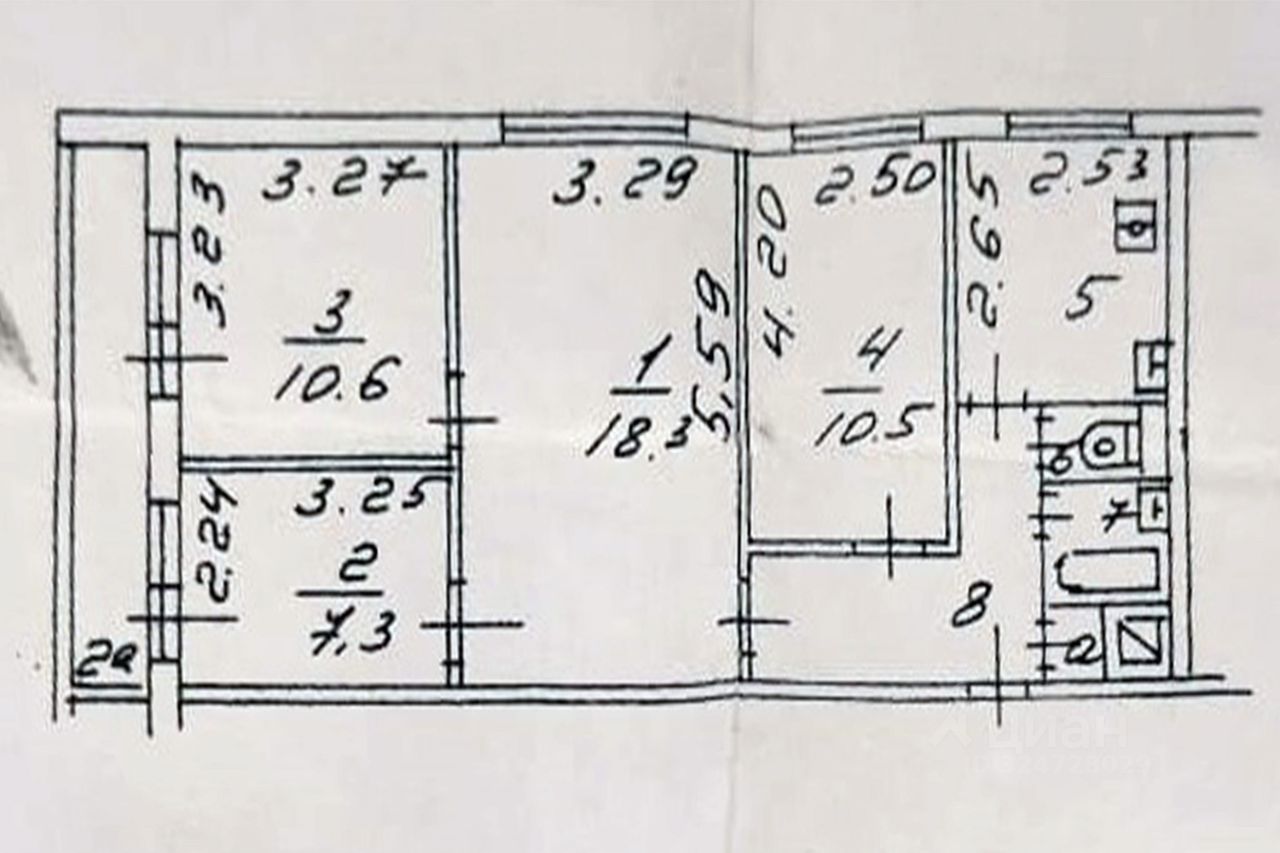 3.27
3.29
2.50
2.53
3.23
4.20
2.65
3
10.6
1
18.3
5,59
4
10.5
5
6
7
3.25
2.24
2
7,3
8
2а
а
циан